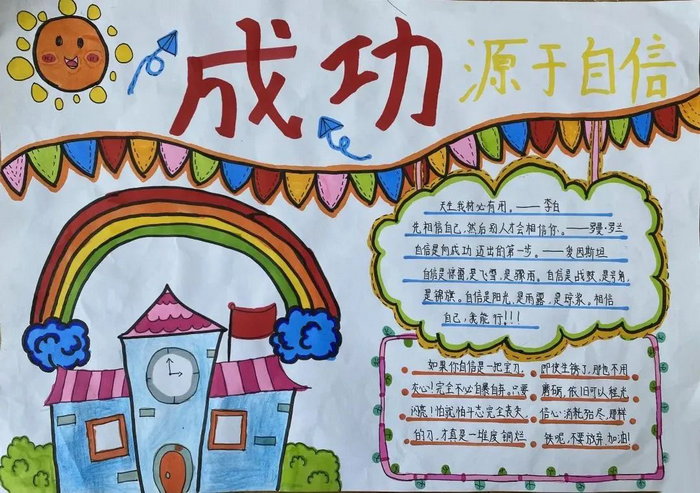 成功 源于自信
天生我材必有用。——李白
先相信自己,然后别人才会相信你。——罗曼·罗兰
自信是向成功迈出的第一步。——爱因斯坦
自信是惊雷,是飞雪,是骤雨。自信是战鼓,是号角,
是锦旗。自信是阳光,是雨露,是琼浆。相信
自己,我能行!!!
如果你自信是一把宝刃 即使生锈了,那也不用
灰心!完全不必自暴自弃。只要 磨砺,依旧可以锃光
闪亮!怕就怕斗志完全丧失 信心消耗殆尽,那样
的刃,才真是一堆废铜烂 铁呢,不要放弃,加油!